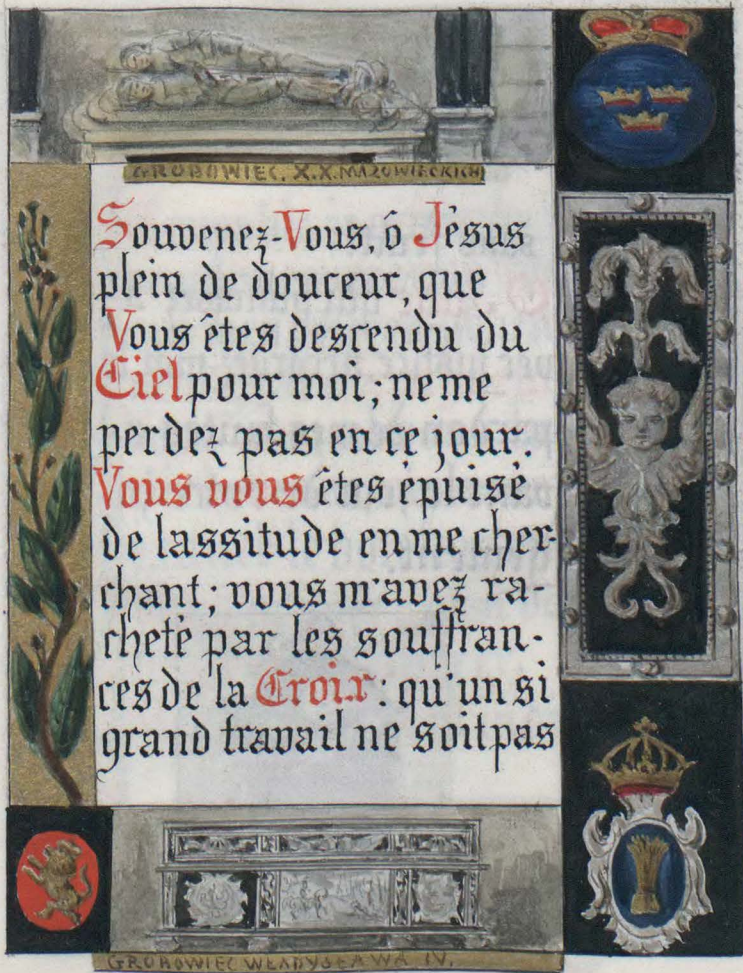 GROBOWIEC. X.X. MAZOWIECKICH
Souvenez-Vous, ô Jésus
plein de douceur, que
Vous êtes descendu du
Ciel pour moi; ne me
perdez pas en ce jour.
Vous vous êtes épuisé
de lassitude en me cher-
chant; vous m'avez ra-
cheté par les souffran-
ces de la Croix: qu'un si
grand travail ne soit pas
GROBOWIEC WŁADYSŁAWA IV.